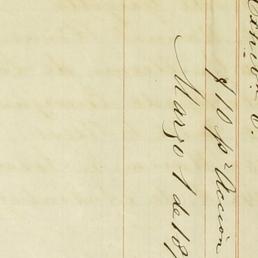 $10 pr Accion
Marzo 1 de 18